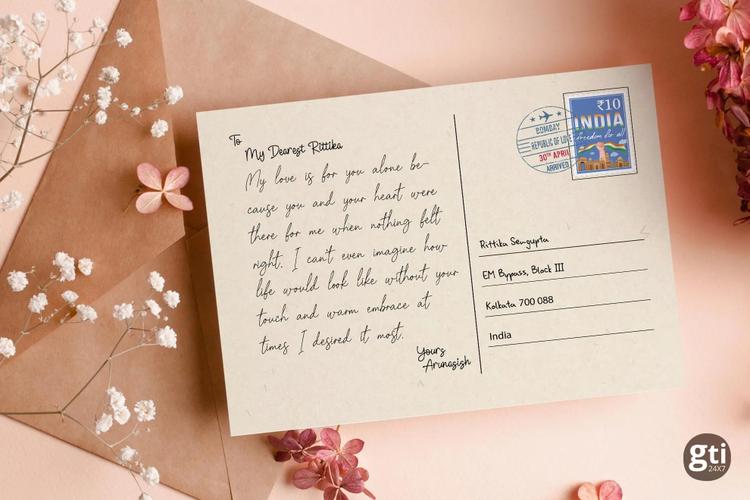 To
My Dearest Rittika
My love is for you alone be-
cause you and your heart were
there for me when nothing felt
right. I can't even imagine how
life would look like without your
touch and warm embrace at
times I desired it most.
Yours
Arunasish
BOMBAY
REPUBLIC OF LOVE
30TH APRIL
ARRIVED
₹10
INDIA
freedom for all
Rittika Sengupta
EM Bypass, Block III
Kolkata 700 088
India
gti
24X7